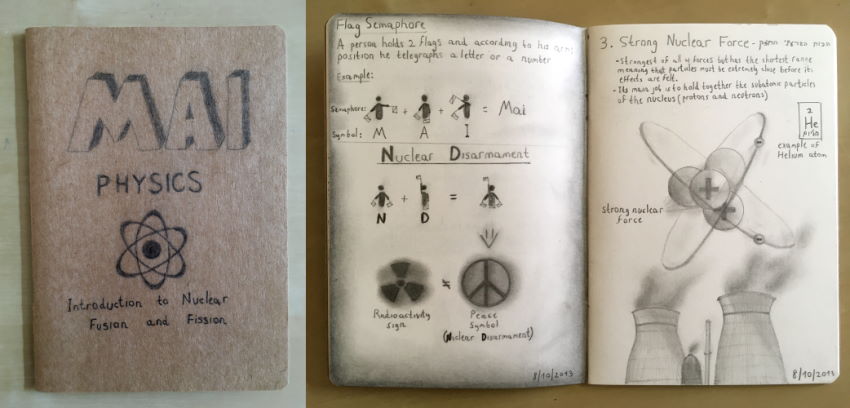 MAI
PHYSICS
Introduction to Nuclear
Fusion and Fission
Flag Semaphore
A person holds 2 flags and according to his arms
position he telegraphs a letter or a number
Example:
Semaphore: + + = Mai
Symbol: M A I
Nuclear Disarmament
+ =
N D
≠
Radioactivity
sign
Peace
Symbol
(Nuclear Disarmament)
8/10/2013
3. Strong Nuclear Force -
-Strongest of all 4 forces but has the shortest range
meaning that particles must be extremely close before its
effects are felt.
-Its main job is to hold together the subatomic particles
of the nucleus (protons and neutrons)
2
He
example of
Helium atom
+
+
strong nuclear
force
8/10/2013